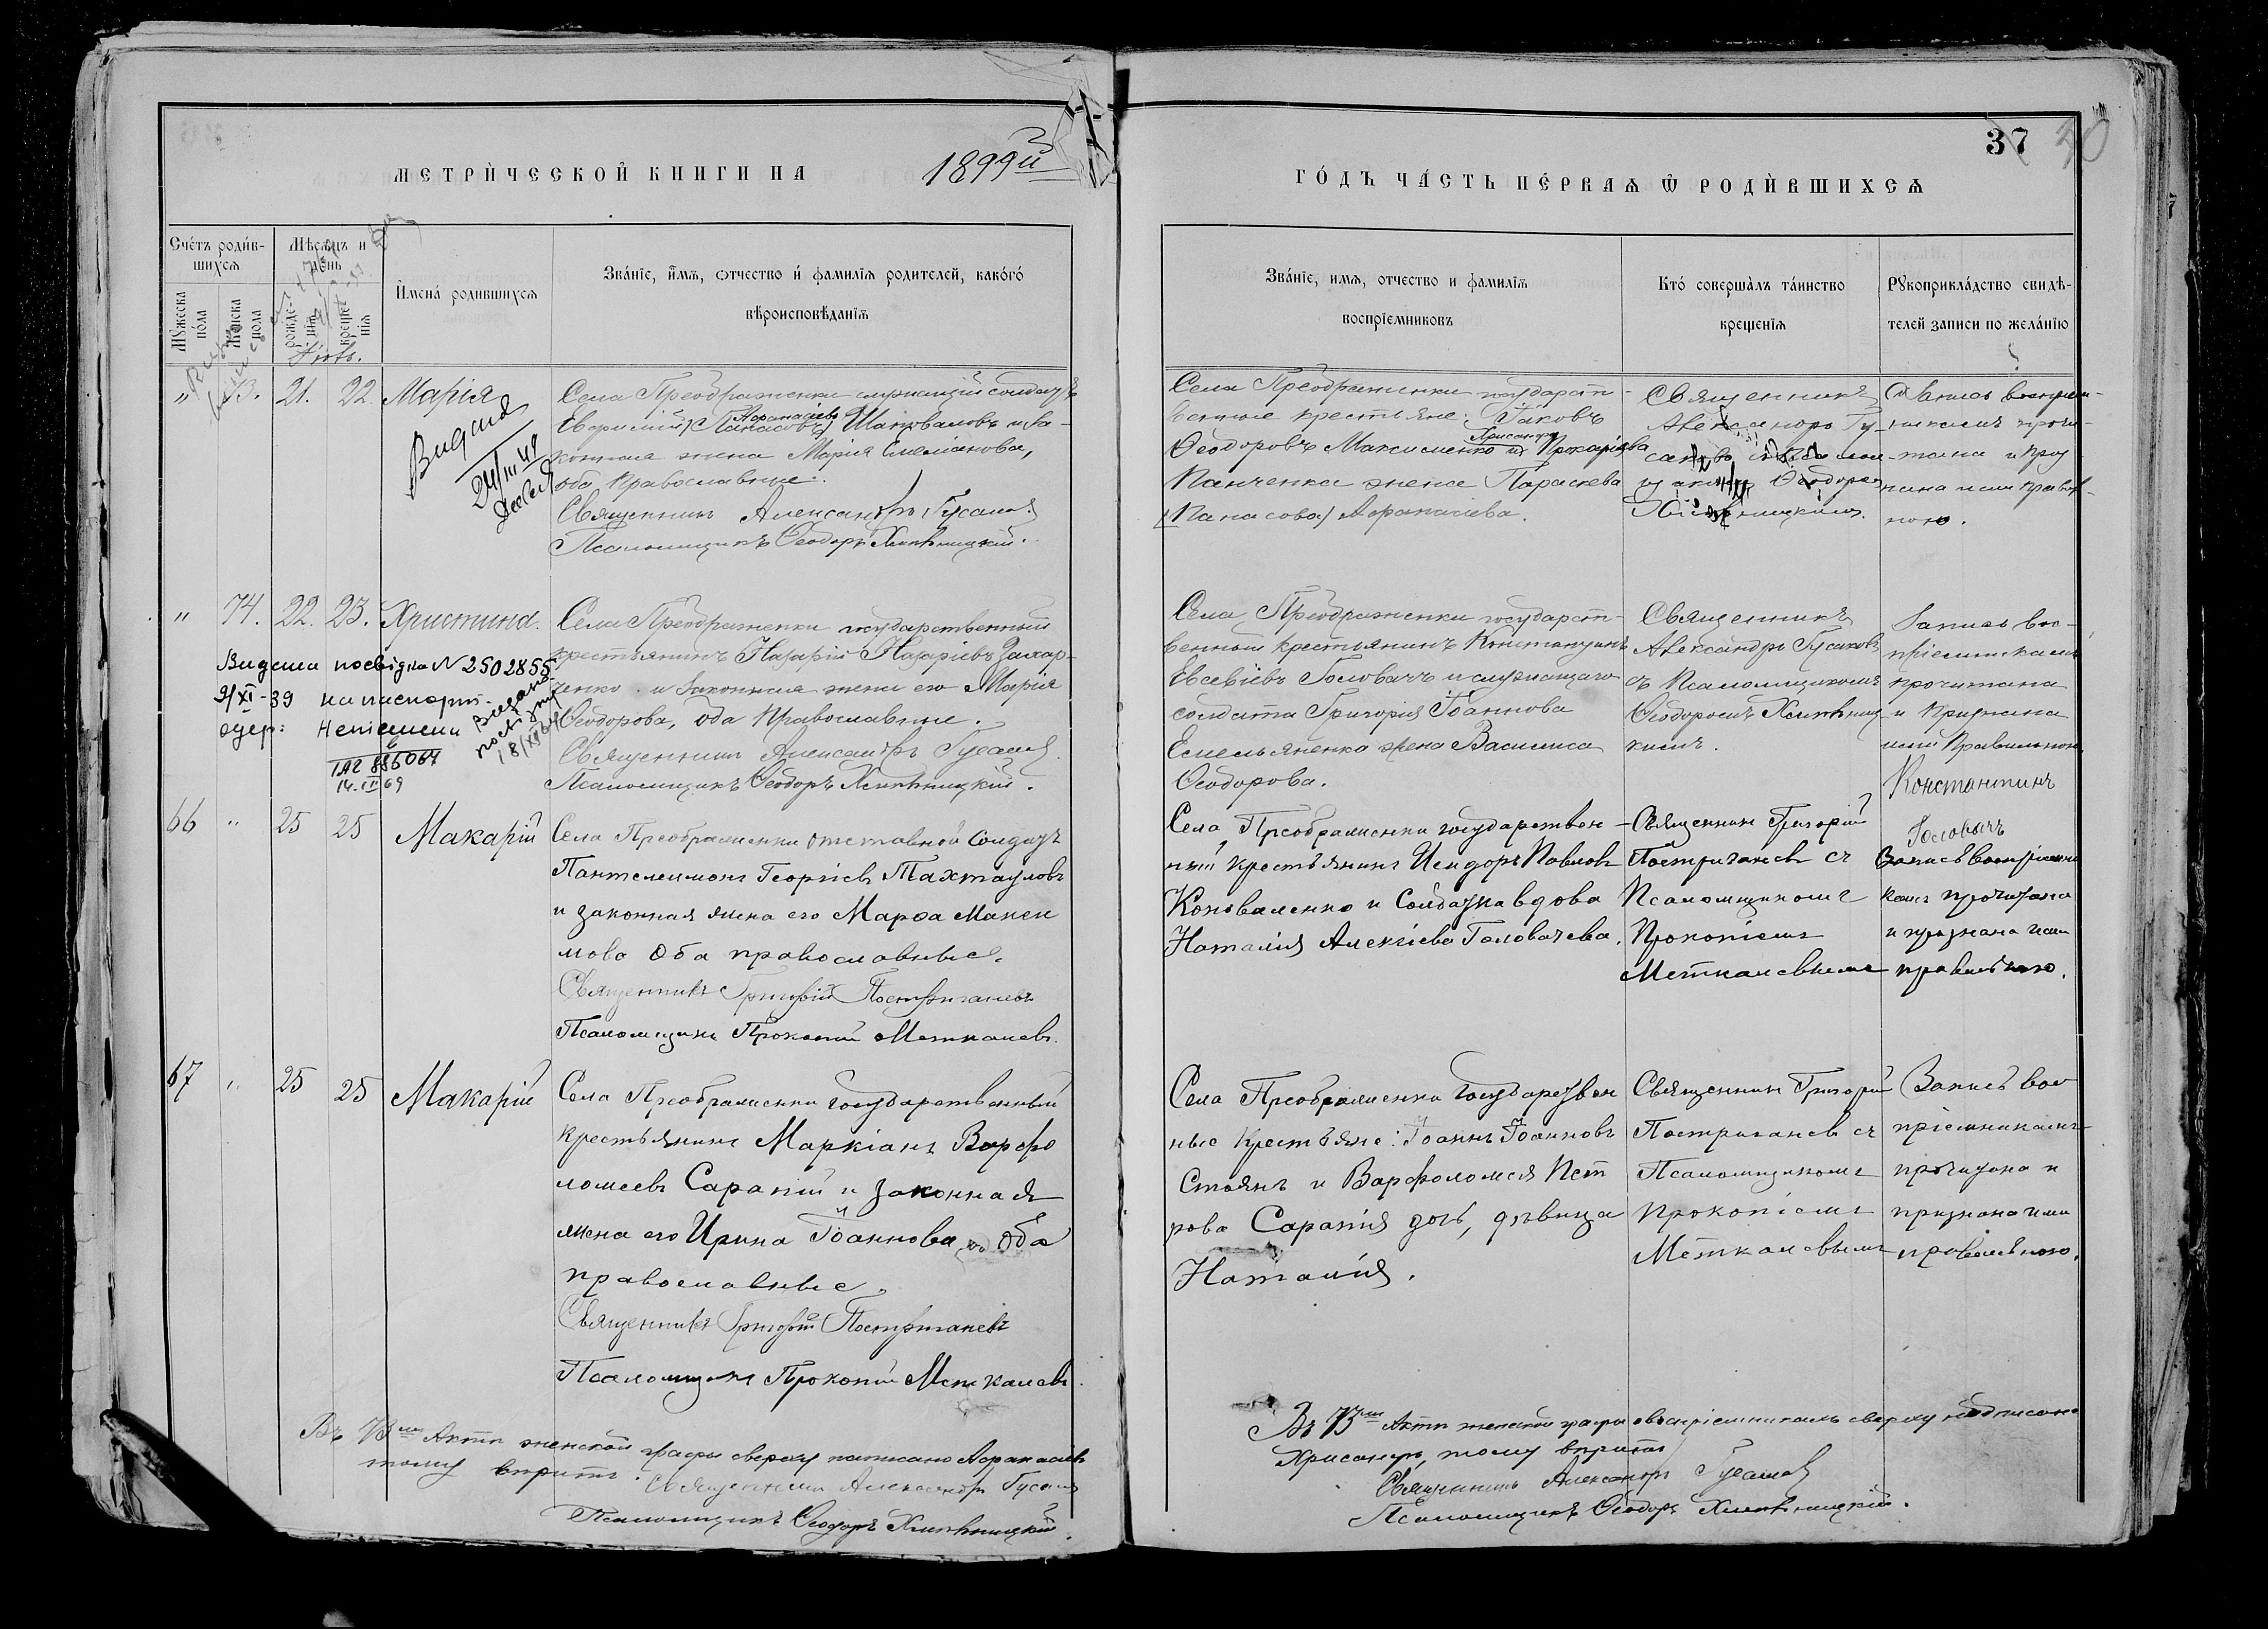 МЕТРИ́ЧЕСКОЙ КНИГИ НА 1899й
ГО́ДЪ ЧА́СТЬ ПЕ́РВАѦ Ѿ РОДИ́ВШИХСѦ
37
Сче́тъ роди́в-
шихсѧ
Мѣсѧцъ и
день
Мꙋжеска
по́ла
Женска
пола
рожде-
нїѧ
креще-
нїѧ
Имена́ родившихсѧ
Зва́нїе, и́мѧ, ѻтчество и́ фамилїѧ родителей, како́гѡ
вѣроисповѣданїѧ
Зва́нїе, имѧ, отчество и фамилїѧ
воспрїемниковъ
Кто́ соверша́лъ та́инство
крещенїѧ
Рꙋкоприкла́дство свидѣ-
телей записи по жела́нїю
" 73. 21. 22. Марія
Видана
24/III 49
Села Преображенки служащій солдатъ
Евфимій (Панасовъ) Афанасіевъ Шаповаловъ и за-
конная жена Марія Емеліанова,
оба Православные.
Священникъ Александръ Гусаковъ
Псаломщикъ Ѳеодоръ Хмѣльницкій.
Села Преображенки государст-
венные крестьяне: Іаковъ
Ѳеодоровъ Максименко и Хрисанфа
Панченка жена Параскева
(Панасова) Афанасіева.
Священникъ
Александръ Гу-
саковъ съ Псалом-
щикомъ Ѳеодоромъ
Запись воспріем-
никами прочи-
тана и приз-
нана ими правиль-
ною.
" 74. 22. 23. Христина.
Видана посвідка N 2502855
9/XI-39 на паспорт.
одер:
Видано
посвідку
886064
14.II 69
Села Преображенки государственный
крестьянинъ Назарій Назаріевъ Захар-
ченко и законная жена его Марія
Ѳеодорова, оба Православные.
Священникъ Александръ Гусаковъ
Псаломщикъ Ѳеодоръ Хмѣльницкій.
Села Преображенки государст-
венный крестьянинъ Константинъ
Евсевіевъ Головачъ и служащаго
солдата Григорія Іоаннова
Емельяненка жена Василиса
Ѳеодорова.
Священникъ
Александръ Гусаковъ
съ Псаломщикомъ
Ѳеодоромъ Хмѣльниц-
кимъ.
Запись вос-
пріемниками
прочитана
и признана
ими Правильною
Константинъ
Головачъ
66 " 25 25 Макарій
Села Преображенки отставной солдатъ
Пантелеимонъ Георгіевъ Тахтауловъ
и законная жена его Марѳа Макси
мова оба православные.
Священникъ Григорій Постриганевъ
Псаломщикъ Прокопій Меткалевъ.
Села Преображенки государствен-
ный крестьянинъ Исидоръ Павловъ
Коноваленко и Солдатка вдова
Наталія Алексіева Головачева.
Священник Григорій
Постриганевъ съ
Псаломщикомъ
Прокопіемъ
Меткалевымъ
Запись воспріемни
ками прочитана
и признана ими
правильною.
67 " 25 25 Макарій
Села Преображенки государственный
крестьянинъ Маркіанъ Варфо
ломеевъ Сарапій и законная
жена его Ирина Іоаннова оба
православные.
Священникъ Григорій Постриганевъ
Псаломщикъ Прокопій Меткалевъ.
Села Преображенки государствен
ные крестьяне: Іоаннъ Іоанновъ
Стоянъ и Варфоломея Пет
рова Сарапія дочь, дѣвица
Наталія.
Священникъ Григорій
Постриганевъ съ
Псаломщикомъ
Прокопіемъ
Меткалевымъ
Запись вос
пріемниками
прочитана и
признана ими
правильною.
Въ 73мъ Актѣ женской графы сверху написано Афанасіевъ
тому вѣрить.
Священникъ Александръ Гусаковъ
Псаломщикъ Ѳеодоръ Хмѣльницкій.
Въ 73мъ Актѣ женской графы о воспріемникахъ сверху надписано
Хрисанфа, тому вѣрить
Священникъ Александръ Гусаковъ
Псаломщикъ Ѳеодоръ Хмѣльницкій.